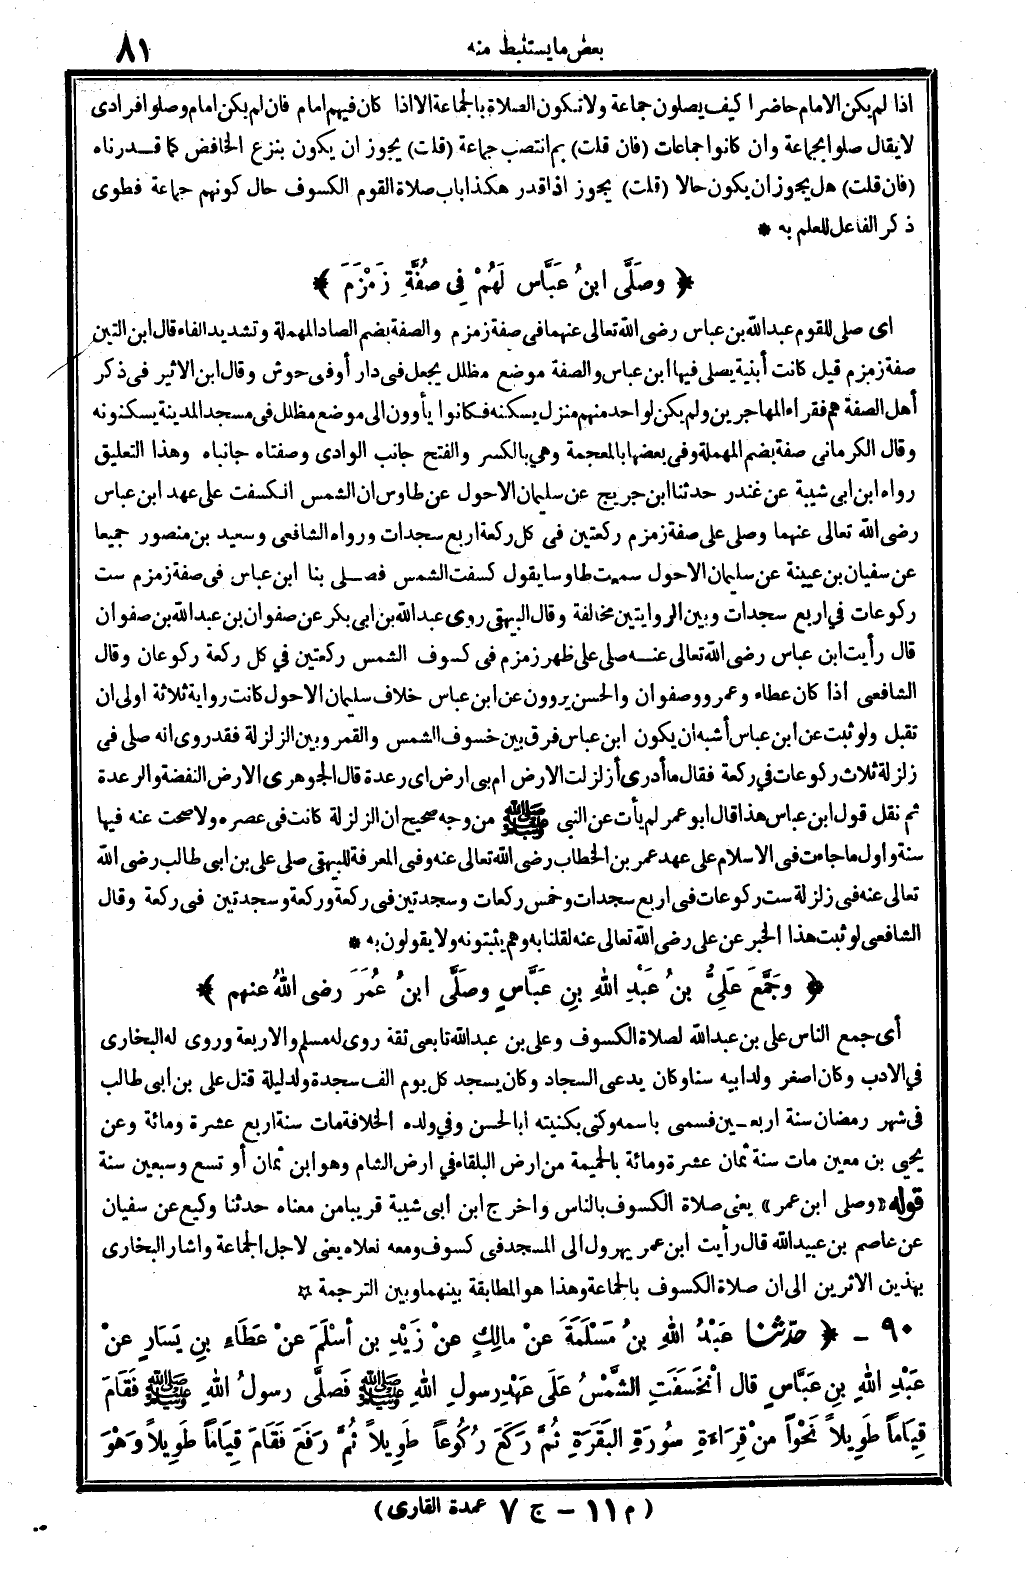 بعض ما يستنبط منه ٨١
اذا لم يكن الامام حاضرا كيف يصلون جماعة ولا تكون الصلاة بالجماعة الا اذا كان فيهم امام فان لم يكن امام وصلوا فرادى
لا يقال صلوا بجماعة وان كانوا جماعات (فان قلت) بم انتصب جماعة (قلت) يجوز ان يكون بنزع الخافض كما قدرناه
(فان قلت) هل يجوز ان يكون حالا (قلت) يجوز اذا قدر هكذا باب صلاة القوم الكسوف حال كونهم جماعة فطوى
ذكر الفاعل للعلم به *
﴿ وصَلَّى ابنُ عَبَّاس لَهُمْ فِى صُفَّةِ زَمْزَمَ ﴾
اى صلى للقوم عبدالله بن عباس رضى الله تعالى عنهما فى صفة زمزم والصفة بضم الصاد المهملة وتشديد الفاء قال ابن التين
صفة زمزم قيل كانت أبنية يصلى فيها ابن عباس والصفة موضع مظلل يجعل فى دار أو فى حوش وقال ابن الاثير فى ذكر
أهل الصفة هم فقراء المهاجرين ولم يكن لواحد منهم منزل يسكنه فكانوا يأوون الى موضع مظلل فى مسجد المدينة يسكنونه
وقال الكرمانى صفة بضم المهملة وفى بعضها بالمعجمة وهي بالكسر والفتح جانب الوادى وصفتاه جانباه وهذا التعليق
رواه ابن ابى شيبة عن غندر حدثنا ابن جريج عن سليمان الاحول عن طاوس ان الشمس انكسفت على عهد ابن عباس
رضى الله تعالى عنهما وصلى على صفة زمزم ركعتين فى كل ركعة اربع سجدات ورواه الشافعى وسعيد بن منصور جميعا
عن سفيان بن عيينة عن سليمان الاحول سمعت طاوسا يقول كسفت الشمس فصلى بنا ابن عباس فى صفة زمزم ست
ركوعات في اربع سجدات وبين الروايتين مخالفة وقال البيهقى روى عبدالله بن ابى بكر عن صفوان بن عبدالله بن صفوان
قال رأيت ابن عباس رضى الله تعالى عنه صلى على ظهر زمزم فى كسوف الشمس ركعتين في كل ركعة ركوعان وقال
الشافعى اذا كان عطاء وعمرو وصفوان والحسن يروون عن ابن عباس خلاف سليمان الاحول كانت رواية ثلاثة اولى ان
تقبل ولو ثبت عن ابن عباس أشبه ان يكون ابن عباس فرق بين خسوف الشمس والقمر وبين الزلزلة فقد روى انه صلى فى
زلزلة ثلاث ركوعات في ركعة فقال ما أدرى أزلزلت الارض ام بى ارض اى رعدة قال الجوهرى الارض النفضة والرعدة
ثم نقل قول ابن عباس هذا قال ابو عمر لم يأت عن النبى ﷺ من وجه صحيح ان الزلزلة كانت فى عصره ولا صحت عنه فيها
سنة واول ما جاءت فى الاسلام على عهد عمر بن الخطاب رضى الله تعالى عنه وفى المعرفة للبيهقى صلى على بن ابى طالب رضى الله
تعالى عنه فى زلزلة ست ركوعات فى اربع سجدات وخمس ركعات وسجدتين فى ركعة وركعة وسجدتين فى ركعة وقال
الشافعى لو ثبت هذا الخبر عن على رضى الله تعالى عنه لقلنا به وهم يثبتونه ولا يقولون به *
﴿ وجَمَّعَ عَلِىُّ بنُ عَبْدِ اللهِ بنِ عَبَّاسٍ وصَلَّى ابنُ عُمَرَ رضى اللهُ عنهم ﴾
أى جمع الناس على بن عبدالله لصلاة الكسوف وعلى بن عبدالله تابعى ثقة روى له مسلم والاربعة وروى له البخارى
في الادب وكان اصغر ولد ابيه سنا وكان يدعى السجاد وكان يسجد كل يوم الف سجدة ولد ليلة قتل على بن ابى طالب
فى شهر رمضان سنة اربعين فسمى باسمه وكنى بكنيته ابا الحسن وفي ولده الخلافة مات سنة اربع عشرة ومائة وعن
يحيى بن معين مات سنة ثمان عشرة ومائة بالحميمة من ارض البلقاء في ارض الشام وهو ابن ثمان أو تسع وسبعين سنة
قوله «وصلى ابن عمر» يعنى صلاة الكسوف بالناس واخرج ابن ابى شيبة قريبا من معناه حدثنا وكيع عن سفيان
عن عاصم بن عبيدالله قال رأيت ابن عمر يهرول الى المسجد فى كسوف ومعه نعلاه يعنى لاجل الجماعة واشار البخارى
بهذين الاثرين الى ان صلاة الكسوف بالجماعة وهذا هو المطابقة بينهما وبين الترجمة ☆
٩٠ - ﴿ حدّثنا عَبْدُ اللهِ بنُ مَسْلَمَةَ عَنْ مالِكٍ عنْ زَيْدِ بنِ أسْلَمَ عنْ عَطَاءِ بنِ يَسَارٍ عنْ
عَبْدِ اللهِ بنِ عَبَّاسٍ قال انْخَسَفَتِ الشَّمْسُ عَلَى عَهْدِ رسولِ اللهِ ﷺ فَصلَّى رسولُ اللهِ ﷺ فَقَامَ
قِيَاماً طَوِيلاً نَحْواً منْ قِرَاءَةِ سُورَةِ البَقَرَةِ ثُمَّ رَكَعَ رُكُوعاً طَوِيلاً ثُمَّ رَفَعَ فَقَامَ قِيَاماً طَوِيلاً وَهْوَ
(م ١١ - ج ٧ عمدة القارى)